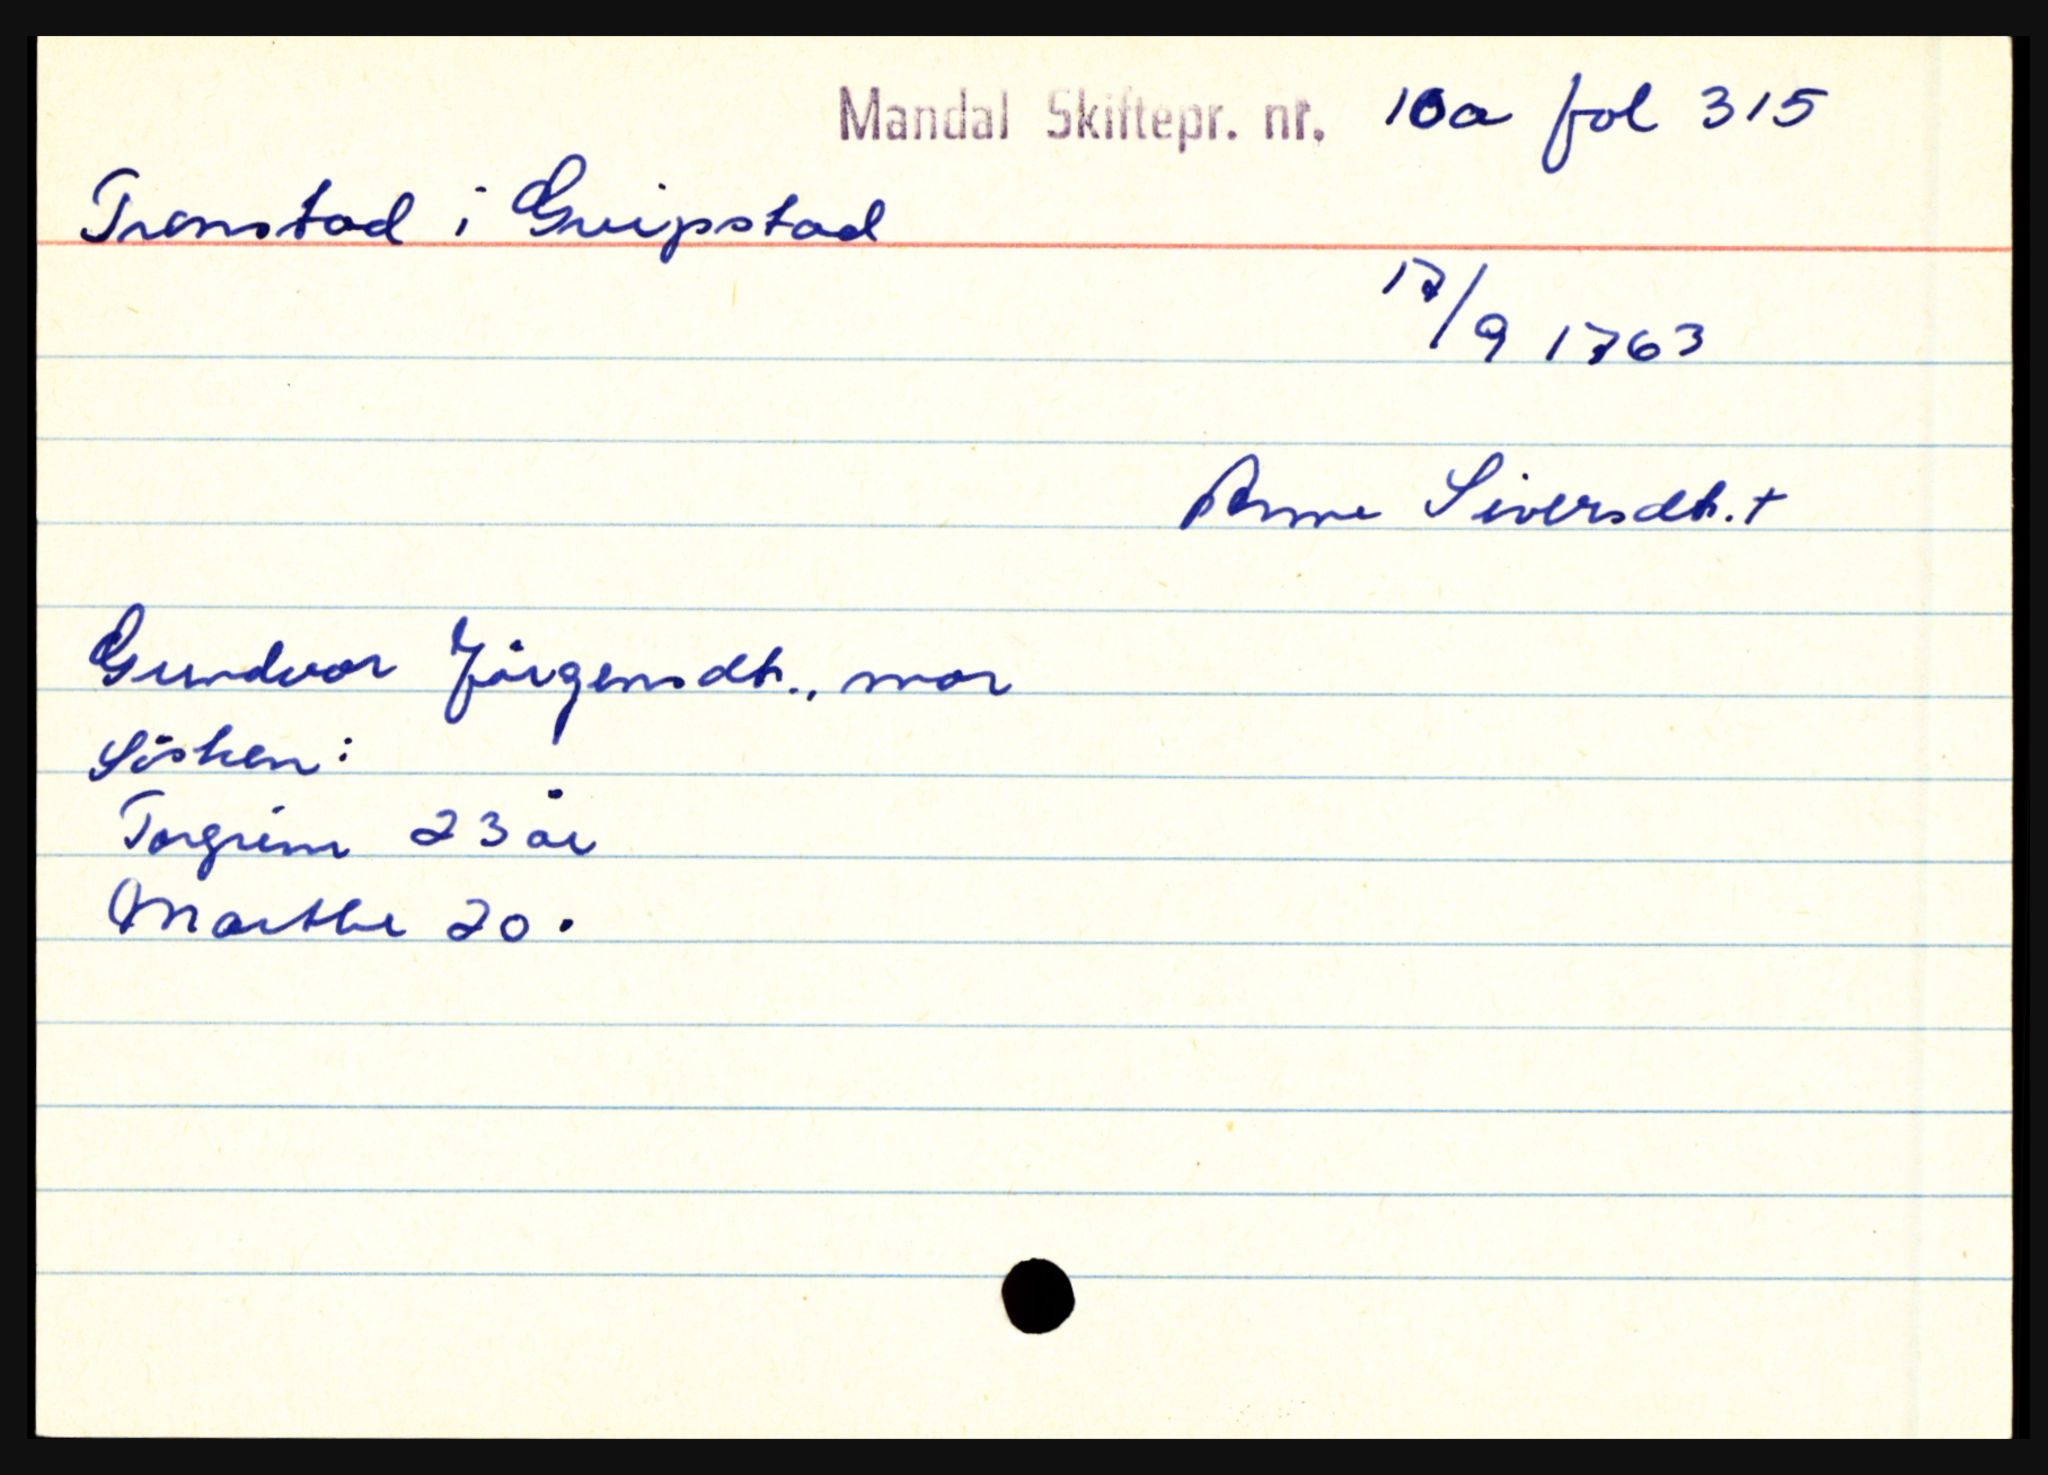 Mandal Skiftepr. nr. 10a fol 315
Trenstad i Greipstad
17/9 1763
Anne Siversdt. +
Gundvor Jörgensdt., mor
Sösken:
Torgrim 23 år
Marthe 20 .